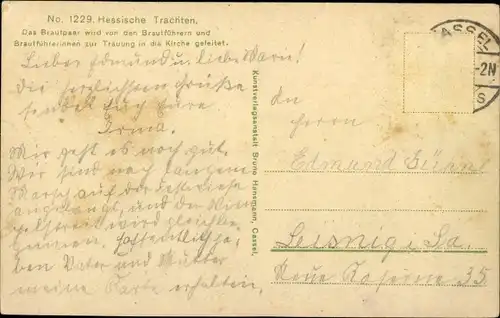 No. 1229. Hessische Trachten.
Das Brautpaar wird von den Brautführern und
Brautführerinnen zur Trauung in die Kirche geleitet.
CASSEL
-2N
S
Lieber Edmund u. liebe
Die herzlichsten Grüße
sendet Euch Eure
Irma.
Mir geht es noch gut.
Wir sind nach langem
Marsch auf der
angelangt, und der
wird gleich
Hoffentlich
ben Vater und Mutter
meine Karte erhalten.
Kunstverlagsanstalt Bruno Hansmann, Cassel.
An
Herrn
Edmund
Leisnig i. Sa.
Neue Kaserne 35